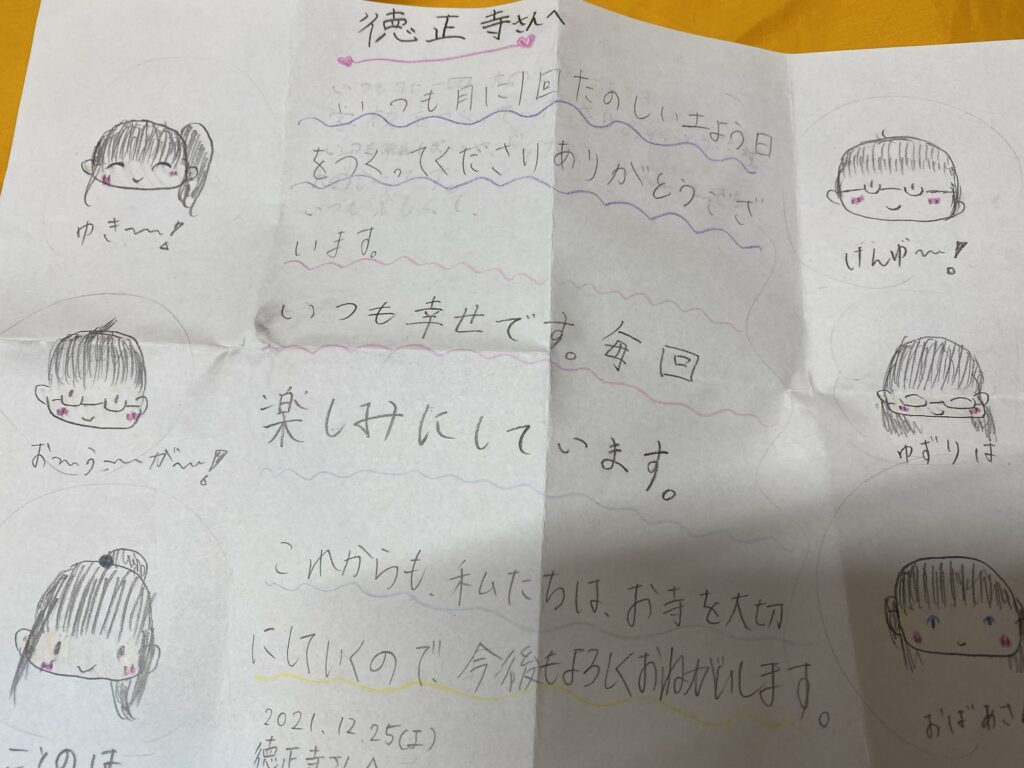 徳正寺さんへ
いつも月に1回たのしい土よう日
をつくってくださりありがとうござ
います。
いつも幸せです。毎回
楽しみにしています。
これからも、私たちは、お寺を大切
にしていくので、今後もよろしくおねがいします。
2021.12.25(土)
徳正寺さんへ
ゆき〜!
お〜う〜が〜!
ことのは
けんゆ〜!
ゆずりは
おばあさん